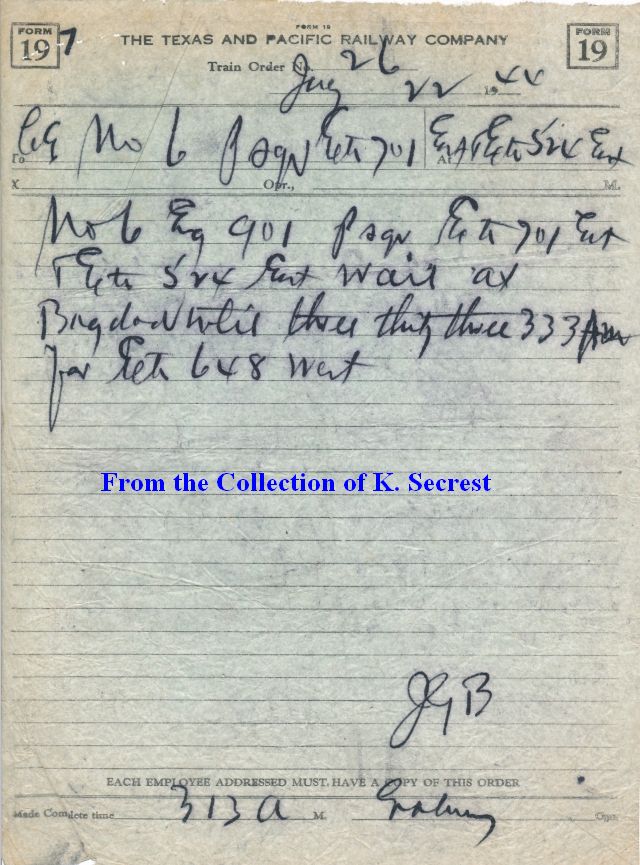 FORM 19
FORM 19 7
THE TEXAS AND PACIFIC RAILWAY COMPANY
FORM 19
Train Order No. 26
22 1944
To C&E No 6 Psgr Extra 701 East At Extra 524 East
X Opr., M.
No 6 Eng 901 Psgr Extra 701 East
Extra 524 East wait at
Bagdad until three thirty three 333 Am
for Extra 648 West
From the Collection of K. Secrest
JGB
EACH EMPLOYEE ADDRESSED MUST HAVE A COPY OF THIS ORDER
Made Complete time 313 A M. Opr.